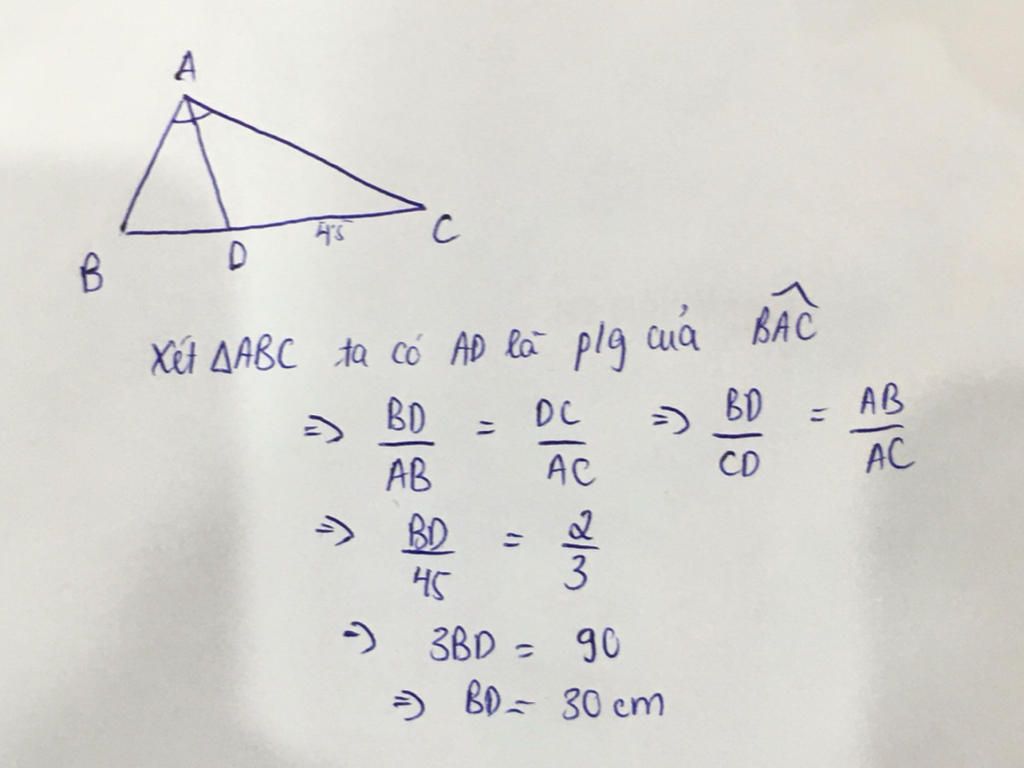 A
B
D
45
C
Xét ΔABC ta có AD là p/g của \widehat{BAC}
=> BD/AB = DC/AC => BD/CD = AB/AC
=> BD/45 = 2/3
=> 3BD = 90
=> BD = 30 cm